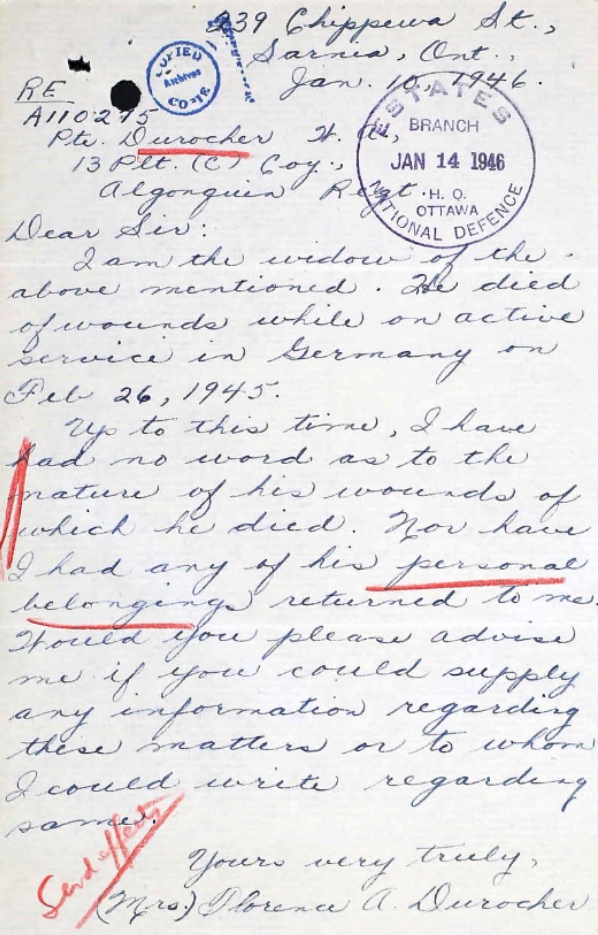 239 Chippewa St.,
Sarnia, Ont.,
Jan. 10, 1946.
COPIED
Archives
COPIE
RE
A110275
Pte. Durocher W. A.,
13 Plt. (C) Coy.,
Algonquin Regt.
ESTATES
BRANCH
JAN 14 1946
H. Q.
OTTAWA
NATIONAL DEFENCE
Dear Sir:
I am the widow of the
above mentioned. He died
of wounds while on active
service in Germany on
Feb 26, 1945.
Up to this time, I have
had no word as to the
nature of his wounds of
which he died. Nor have
I had any of his personal
belongings returned to me.
Would you please advise
me if you could supply
any information regarding
these matters or to whom
I could write regarding
same.
Send effects
Yours very truly,
(Mrs.) Florence A. Durocher